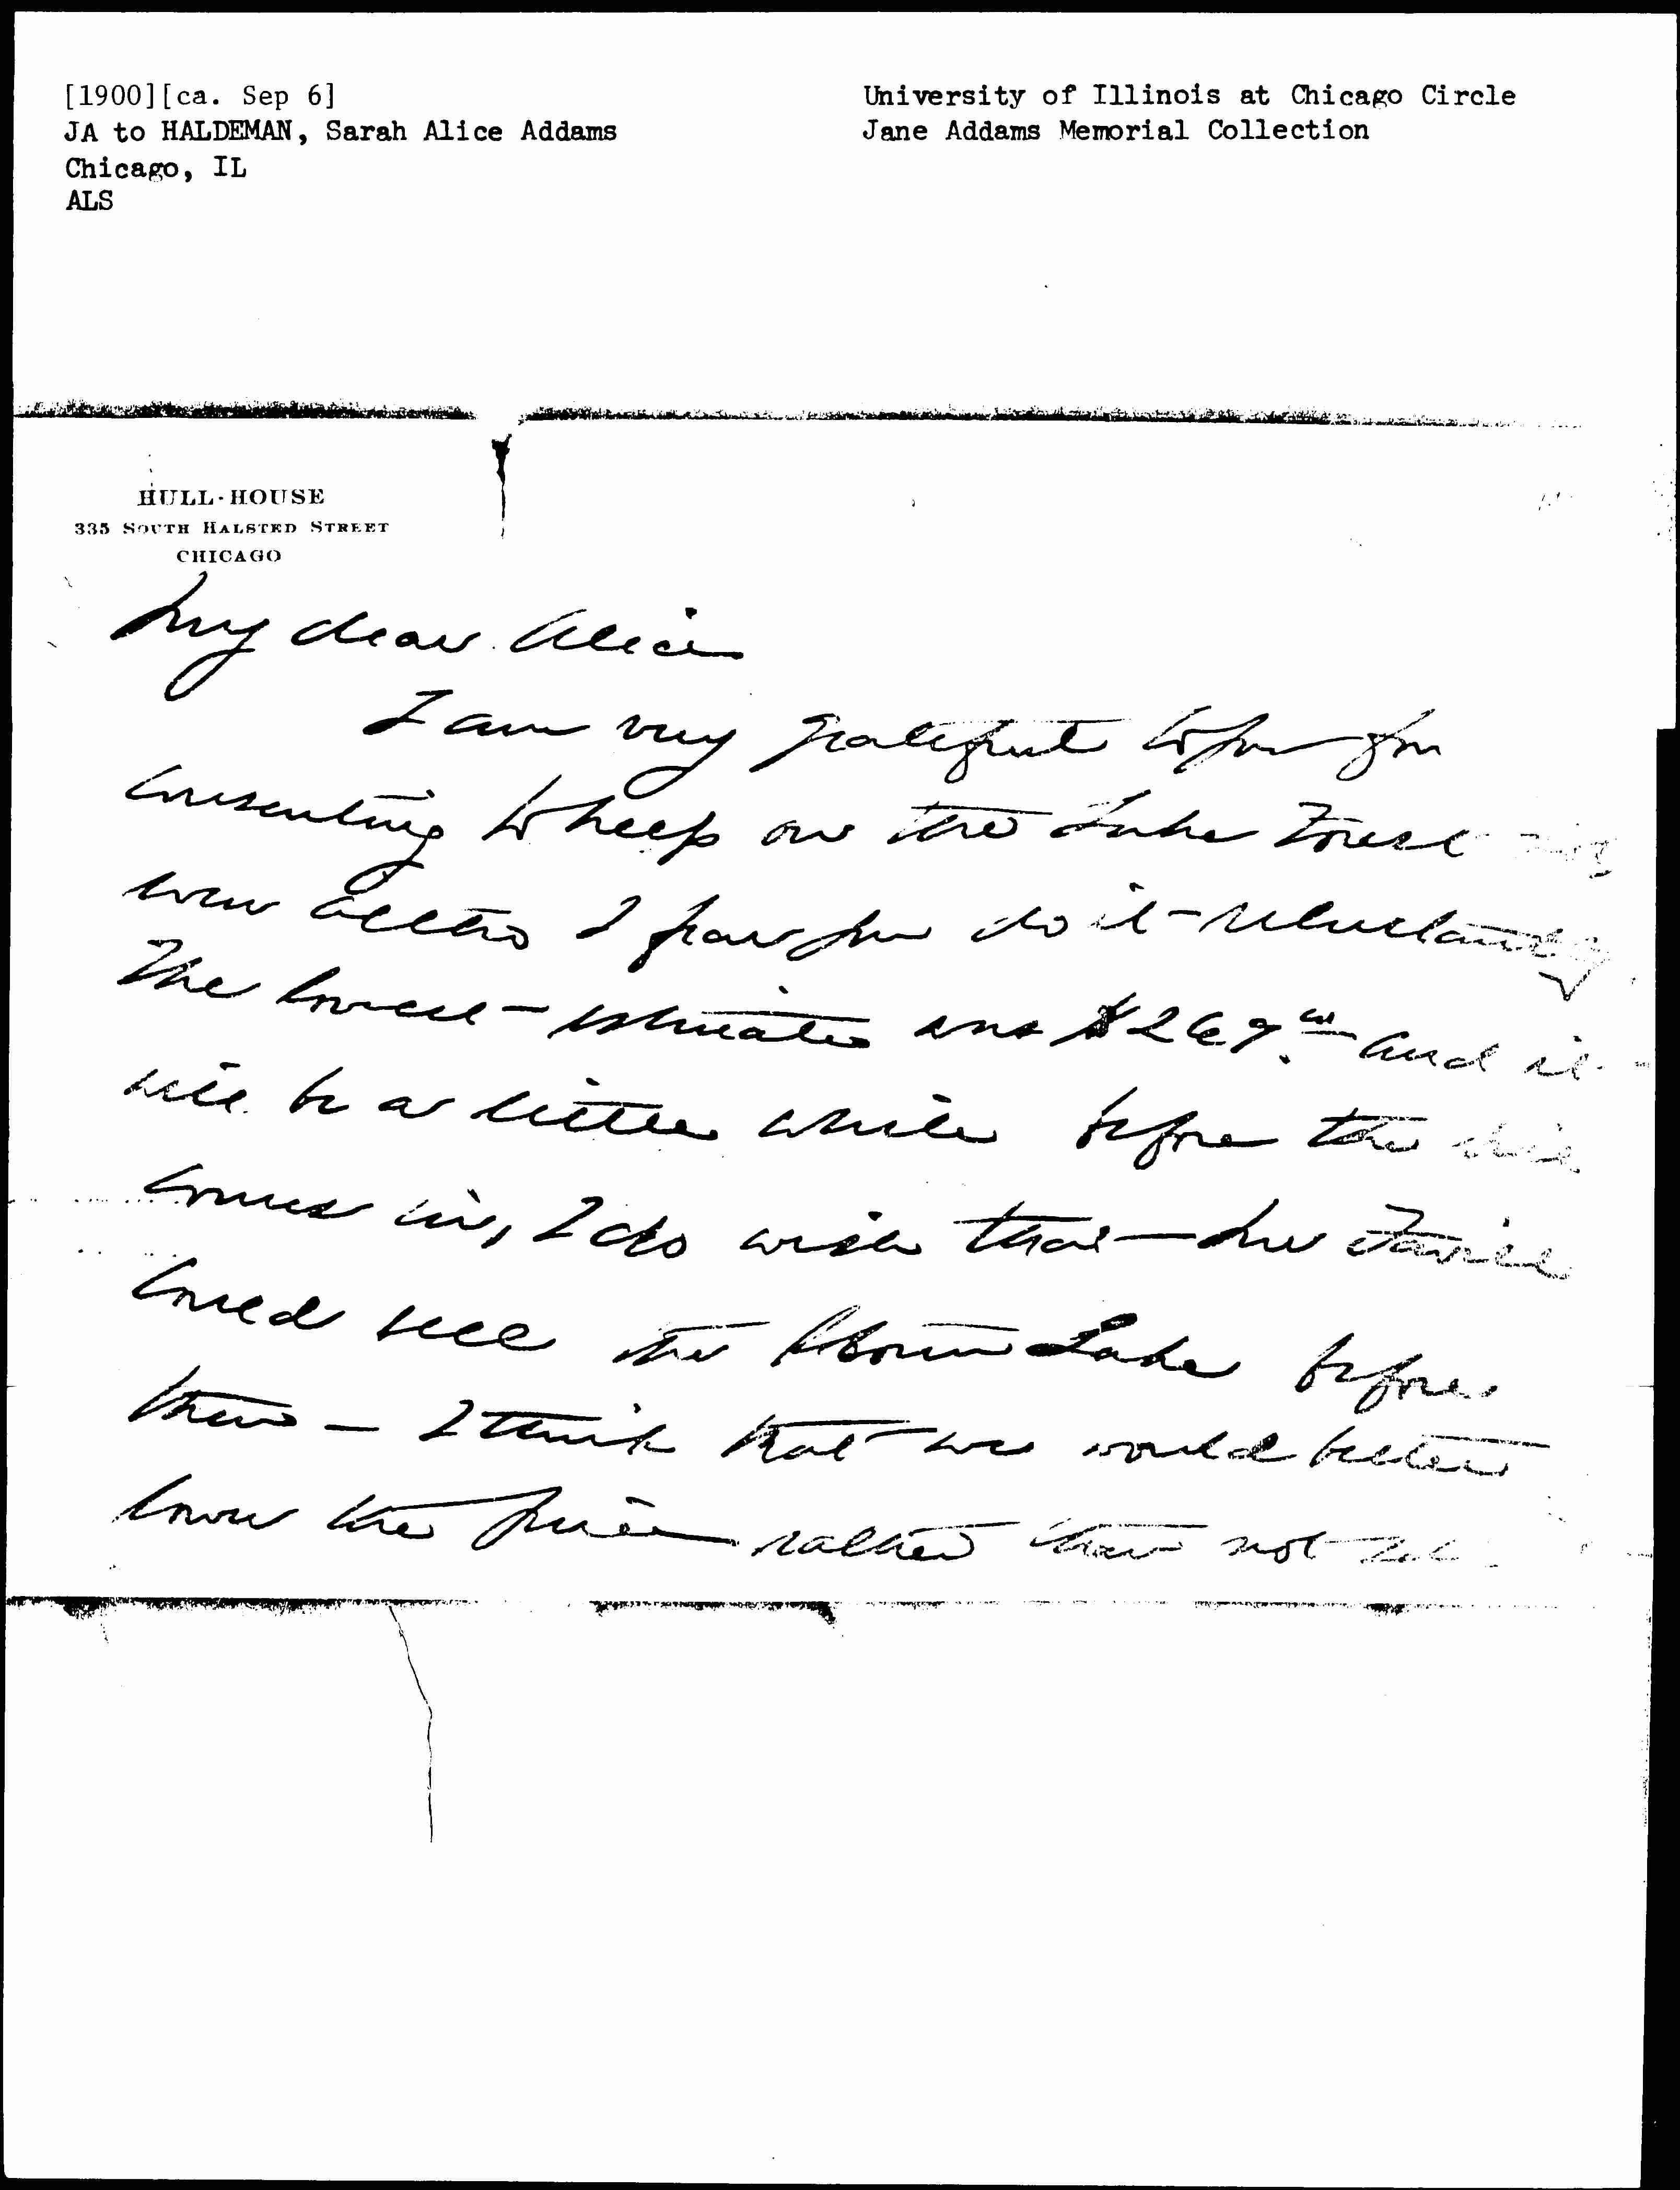 [1900][ca. Sep 6]
JA to HALDEMAN, Sarah Alice Addams
Chicago, IL
ALS
University of Illinois at Chicago Circle
Jane Addams Memorial Collection
HULL-HOUSE
335 SOUTH HALSTED STREET
CHICAGO
My dear Alice
I am very grateful to you for
consenting to keep on the Lake Forest
even altho I fear you do it reluctantly
The lowest estimate was $269.00 and it
will be a little while before the bill
comes in, I do wish that Mr
could sell the Storm Lake before
then – I think that we would better
lower the price rather than not sell